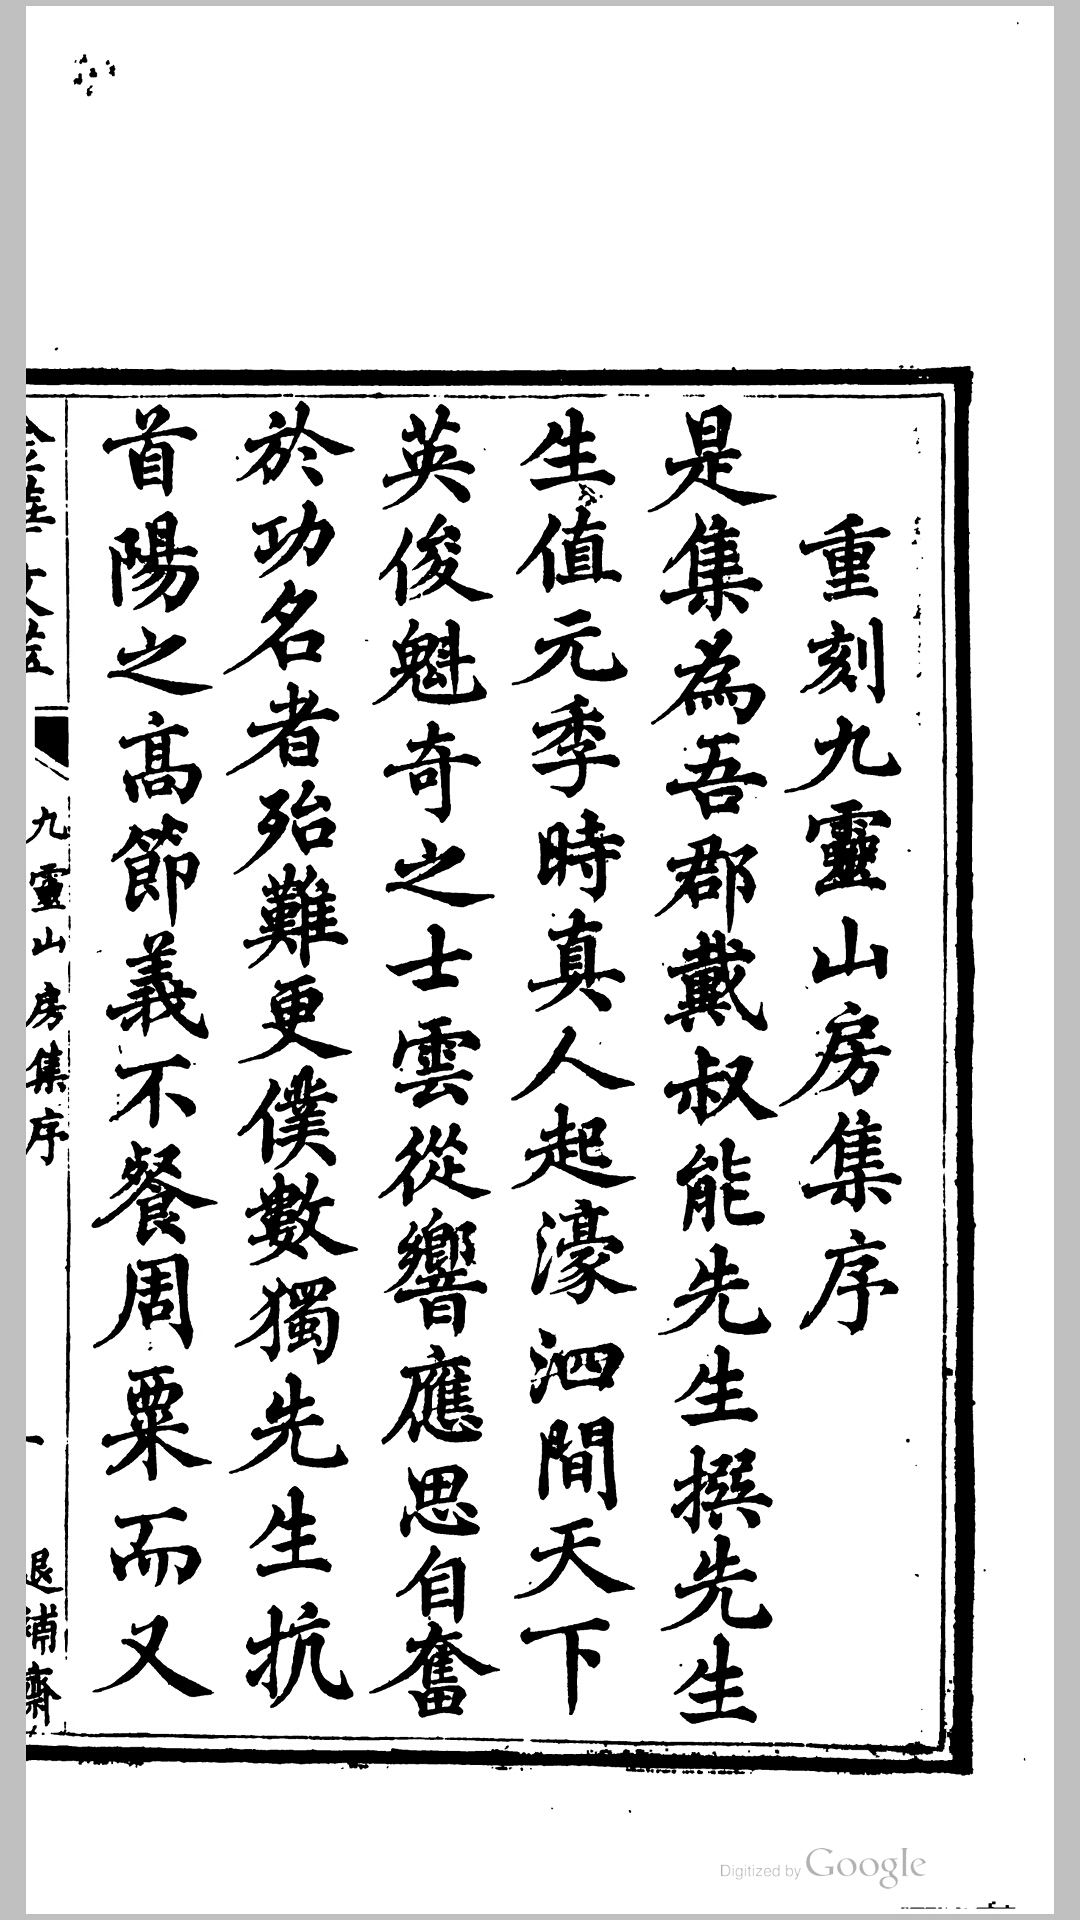 重刻九靈山房集序
是集為吾郡戴叔能先生撰先生
生值元季時真人起濠泗間天下
英俊魁奇之士雲從響應思自奮
於功名者殆難更僕數獨先生抗
首陽之高節義不餐周粟而又
金華文萃
九靈山房集序
一
退補齋
Digitized by Google